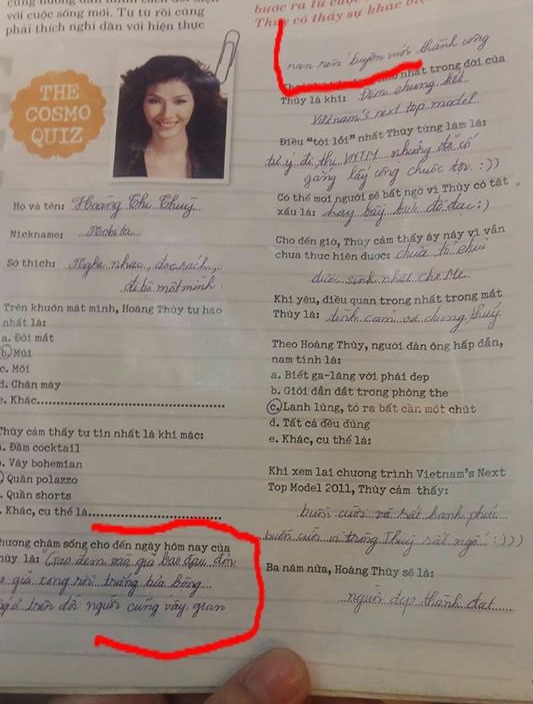 với cuộc sống mới. Từ từ rồi cũng
phải thích nghi dần với hiện thực
THE
COSMO
QUIZ
Họ và tên: Hoàng Thị Thuỳ
Nickname: Nobita
Sở thích: Nghe nhạc, đọc sách,
đi bộ một mình
Trên khuôn mặt mình, Hoàng Thùy tự hào
nhất là:
a. Đôi mắt
b. Mũi
c. Môi
d. Chân mày
e. Khác
Thùy cảm thấy tự tin nhất là khi mặc:
a. Đầm cocktail
b. Váy bohemian
Quần polazzo
Quần shorts
Khác, cụ thể là
hương châm sống cho đến ngày hôm nay của
hùy là: Gạo đem vào giã bao đau đớn
gạo giã xong rồi trắng tựa bông
Sống ở trên đời người cũng vậy, gian
bước ra từ cuộc
Thùy có thấy sự khác biệt
nan rèn luyện mới thành công
nhất trong đời của
Thùy là khi: Đêm chung kết
Vietnam's next top model
Điều "tội lỗi" nhất Thùy từng làm là:
tự ý đi thi VNTM nhưng đã cố
gắng lấy công chuộc tội :))
Có thể mọi người sẽ bất ngờ vì Thùy có tật
xấu là: hay bày bừa đồ đạc :)
Cho đến giờ, Thùy cảm thấy áy náy vì vẫn
chưa thực hiện được: chưa tổ chức
được sinh nhật cho Mẹ
Khi yêu, điều quan trọng nhất trong mắt
Thùy là: tình cảm và chung thuỷ
Theo Hoàng Thùy, người đàn ông hấp dẫn,
nam tính là:
a. Biết ga-lăng với phái đẹp
b. Giỏi dẫn dắt trong phòng the
c. Lạnh lùng, tỏ ra bất cần một chút
d. Tất cả đều đúng
e. Khác, cụ thể là:
Khi xem lại chương trình Vietnam's Next
Top Model 2011, Thùy cảm thấy:
buồn cười và rất hạnh phúc
buồn cười vì trông Thuỳ rất ngố :)))
Ba năm nữa, Hoàng Thùy sẽ là:
người đẹp thành đạt